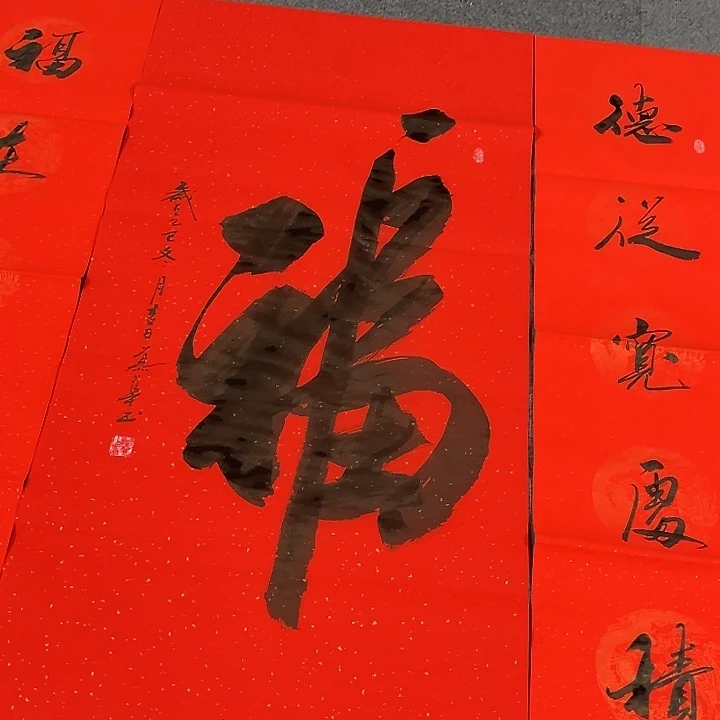 德從寬處積
福
歲在乙巳冬月吉日
福